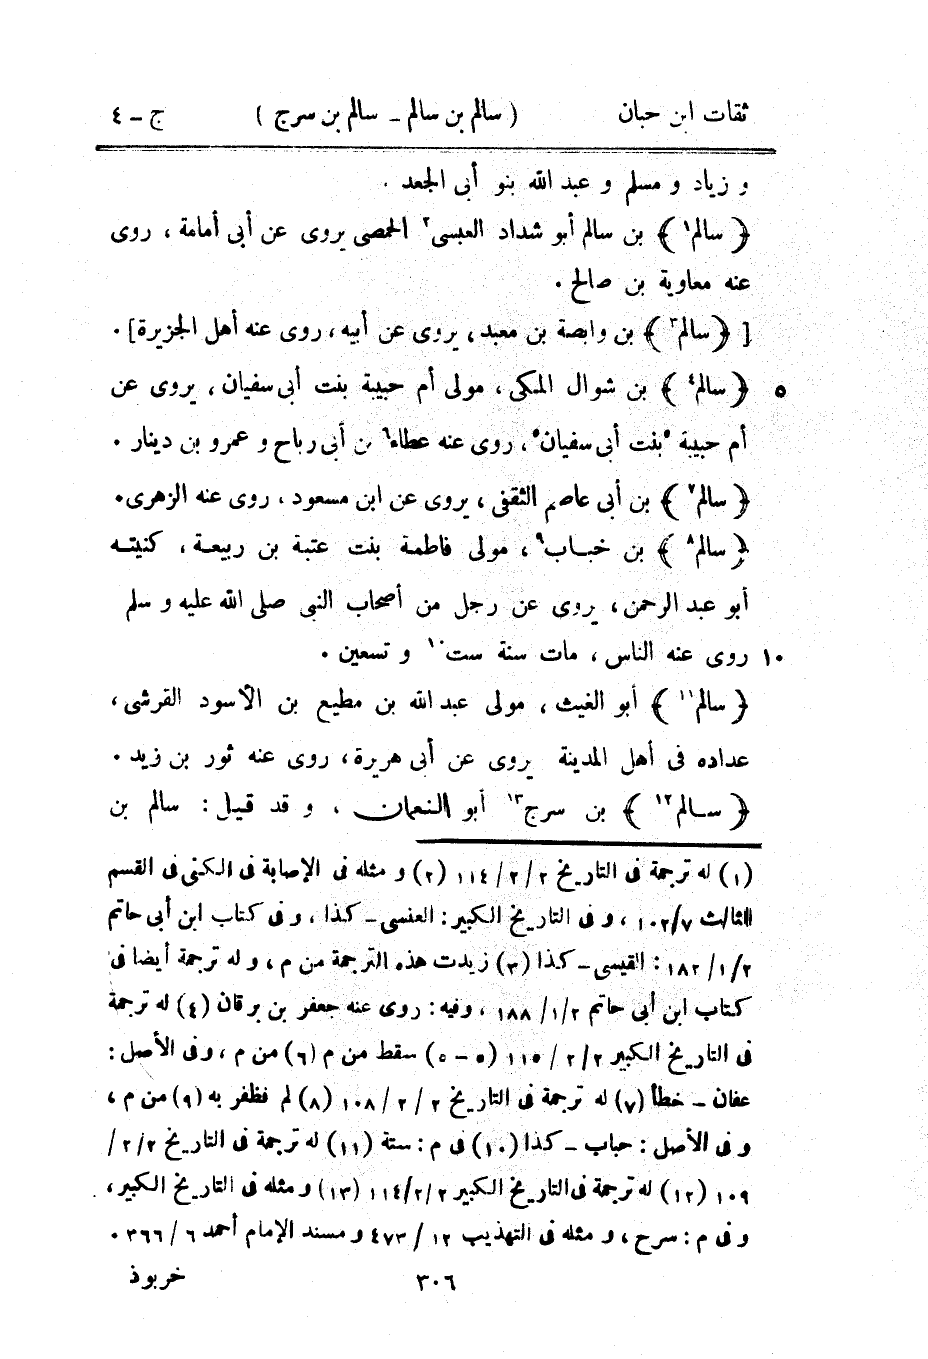 ثقات ابن حبان ( سالم بن سالم ـ سالم بن سرج ) ج ـ ٤
و زياد و مسلم و عبد الله بنو أبى الجعد .
﴿ سالم١ ﴾ بن سالم أبو شداد العبسى٢ الحمصى يروى عن أبى أمامة ، روى
عنه معاوية بن صالح .
[ ﴿ سالم٣ ﴾ بن وابصة بن معبد ، يروى عن أبيه ، روى عنه أهل الجزيرة] .
﴿ سالم٤ ﴾ بن شوال المكى ، مولى أم حبيبة بنت أبى سفيان ، يروى عن ٥
أم حبيبة ٥بنت أبى سفيان٥ ، روى عنه عطاء٦ بن أبى رباح و عمرو بن دينار .
﴿ سالم٧ ﴾ بن أبى عاصم الثقفى ، يروى عن ابن مسعود ، روى عنه الزهرى .
﴿ سالم٨ ﴾ بن خباب٩ ، مولى فاطمة بنت عتبة بن ربيعة ، كنيته
أبو عبد الرحمن ، يروى عن رجل من أصحاب النبى صلى الله عليه و سلم
روى عنه الناس ، مات سنة ست١٠ و تسعين . ١٠
﴿ سالم١١ ﴾ أبو الغيث ، مولى عبد الله بن مطيع بن الأسود القرشى ،
عداده فى أهل المدينة يروى عن أبى هريرة ، روى عنه ثور بن زيد .
﴿ سالم١٢ ﴾ بن سرج١٣ أبو النعمان ، و قد قيل : سالم بن
(١) له ترجمة فى التاريخ ٢/٢/١١٤ (٢) و مثله فى الإصابة فى الكنى فى القسم
الثالث ١٠٢/٧ ، و فى التاريخ الكبير : العنسى ـ كذا ، و فى كتاب ابن أبى حاتم
٢/١/١٨٢ : القيسى ـ كذا (٣) زيدت هذه الترجمة من م ، و له ترجمة أيضا فى
كتاب ابن أبى حاتم ٢/١/١٨٨ ، وفيه : روى عنه جعفر بن برقان (٤) له ترجمة
فى التاريخ الكبير ٢/٢/١١٥ (٥ ـ ٥) سقط من م (٦) من م ، وفى الأصل :
عفان ـ خطأ (٧) له ترجمة فى التاريخ ٢/٢/١٠٨ (٨) لم فظفر به (٩) من م ،
و فى الأصل : حباب ـ كذا (١٠) فى م : ستة (١١) له ترجمة فى التاريخ ٢/٢/
١٠٩ (١٢) له ترجمة فى التاريخ الكبير ٢/٢/١١٤ (١٣) و مثله فى التاريخ الكبير ،
و فى م : سرح ، و مثله فى التهذيب ١٢/٤٧٣ و مسند الإمام أحمد ٦/٣٦٦ .
٣٠٦ خربوذ